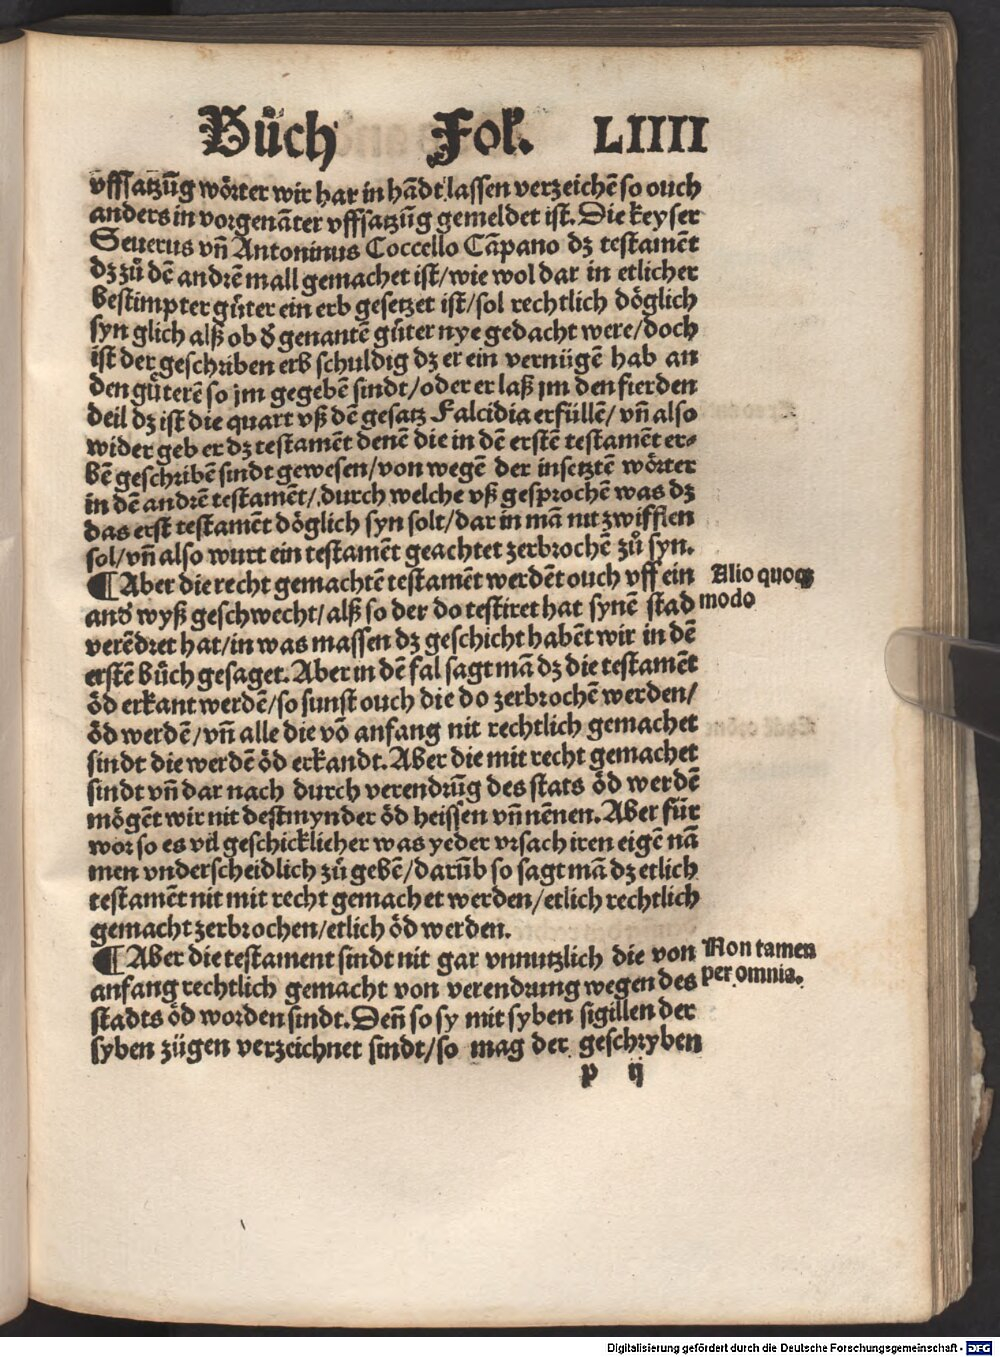 Bůch Fol. LIIII
vffsatzūg wörter wir har in hādt lassen verzeichē so ouch
anders in vorgenāter vffsatzūg gemeldet ist. Die keyser
Seuerus vn̄ Antoninus Coccello Cāpano dz testamēt
dz zů dē andrē mall gemachet ist/ wie wol dar in etlicher
bestimpter gůter ein erb gesetzet ist/ sol rechtlich döglich
syn glich alß ob d̕ genantē gůter nye gedacht were/ doch
ist der geschriben erb schuldig dz er ein vernügē hab an
den gůterē so jm gegebē sindt/ oder er laß jm den fierden
deil dz ist die quart vß dē gesatz Falcidia erfüllē/ vn̄ also
wider geb er dz testamēt denē die in dē erstē testamēt er⸗
bē geschribē sindt gewesen/ von wegē der insetztē wörter
in dē andrē testamēt/ durch welche vß gesprochē was dz
das erst testamēt döglich syn solt/ dar in mā nit zwifflen
sol/ vn̄ also wurt ein testamēt geachtet zerbrochē zů syn.
¶ Aber die recht gemachtē testamēt werdēt ouch vff ein
and̕ wyß geschwecht/ alß so der do testiret hat synē stad
verēdret hat/ in was massen dz geschicht habēt wir in dē
erstē bůch gesaget. Aber in dē fal sagt mā dz die testamēt
öd erkant werdē/ so sunst ouch die do zerbrochē werden/
öd werdē/ vn̄ alle die vō anfang nit rechtlich gemachet
sindt die werdē öd erkandt. Aber die mit recht gemachet
sindt vn̄ dar nach durch verendrūg des stats öd werdē
mögēt wir nit destmynder öd heissen vn̄ nēnen. Aber für
wor so es vil geschicklicher was yeder vrsach iren eigē nā
men vnderscheidlich zů gebē/ darūb so sagt mā dz etlich
testamēt nit mit recht gemachet werden/ etlich rechtlich
gemacht zerbrochen/ etlich öd werden.
¶ Aber die testament sindt nit gar vnnutzlich die von
anfang rechtlich gemacht von verendrung wegen des
stadts öd worden sindt. Den̄ so sy mit syben sigillen der
syben zügen verzeichnet sindt/ so mag der geschryben
p ij
Alio quoqꝫ
modo
Non tamen
per omnia.
Digitalisierung gefördert durch die Deutsche Forschungsgemeinschaft - DFG